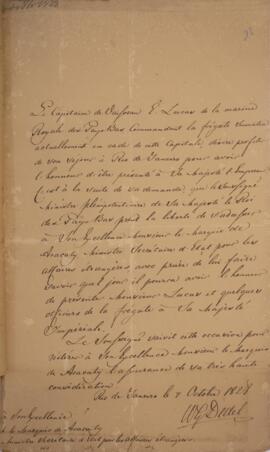 Le Capitaine de Vaisseau E. Lucas de la marine
Royale des Pays Bas Commandant la frégate
actuellement en rade de cette Capitale, désire profiter
de son séjour à Rio de Janeiro pour avoir
l'honneur d'être présenté à Sa Majesté l'Empereur
C'est à la suite de sa demande, que le Soussigné
Ministre plénipotentiaire de Sa Majesté le Roi
des Pays Bas prend la liberté de s'adresser
à Son Excellence Monsieur le Marquis de
Aracaty Ministre Secrétaire d'Etat pour les
affaires étrangères avec prière de lui faire
savoir quel jour il pourra avoir l'honneur
de présenter Monsieur Lucas et quelques
officiers de la frégate à Sa Majesté
Impériale.
Le Soussigné saisit cette occasion pour
réitérer à Son Excellence Monsieur le Marquis
de Aracaty l'assurance de sa très haute
considération
Rio de Janeiro le 7 Octobre 1828
à Son Excellence
le Marquis de Aracaty
Ministre Secrétaire d'Etat pour les affaires étrangères